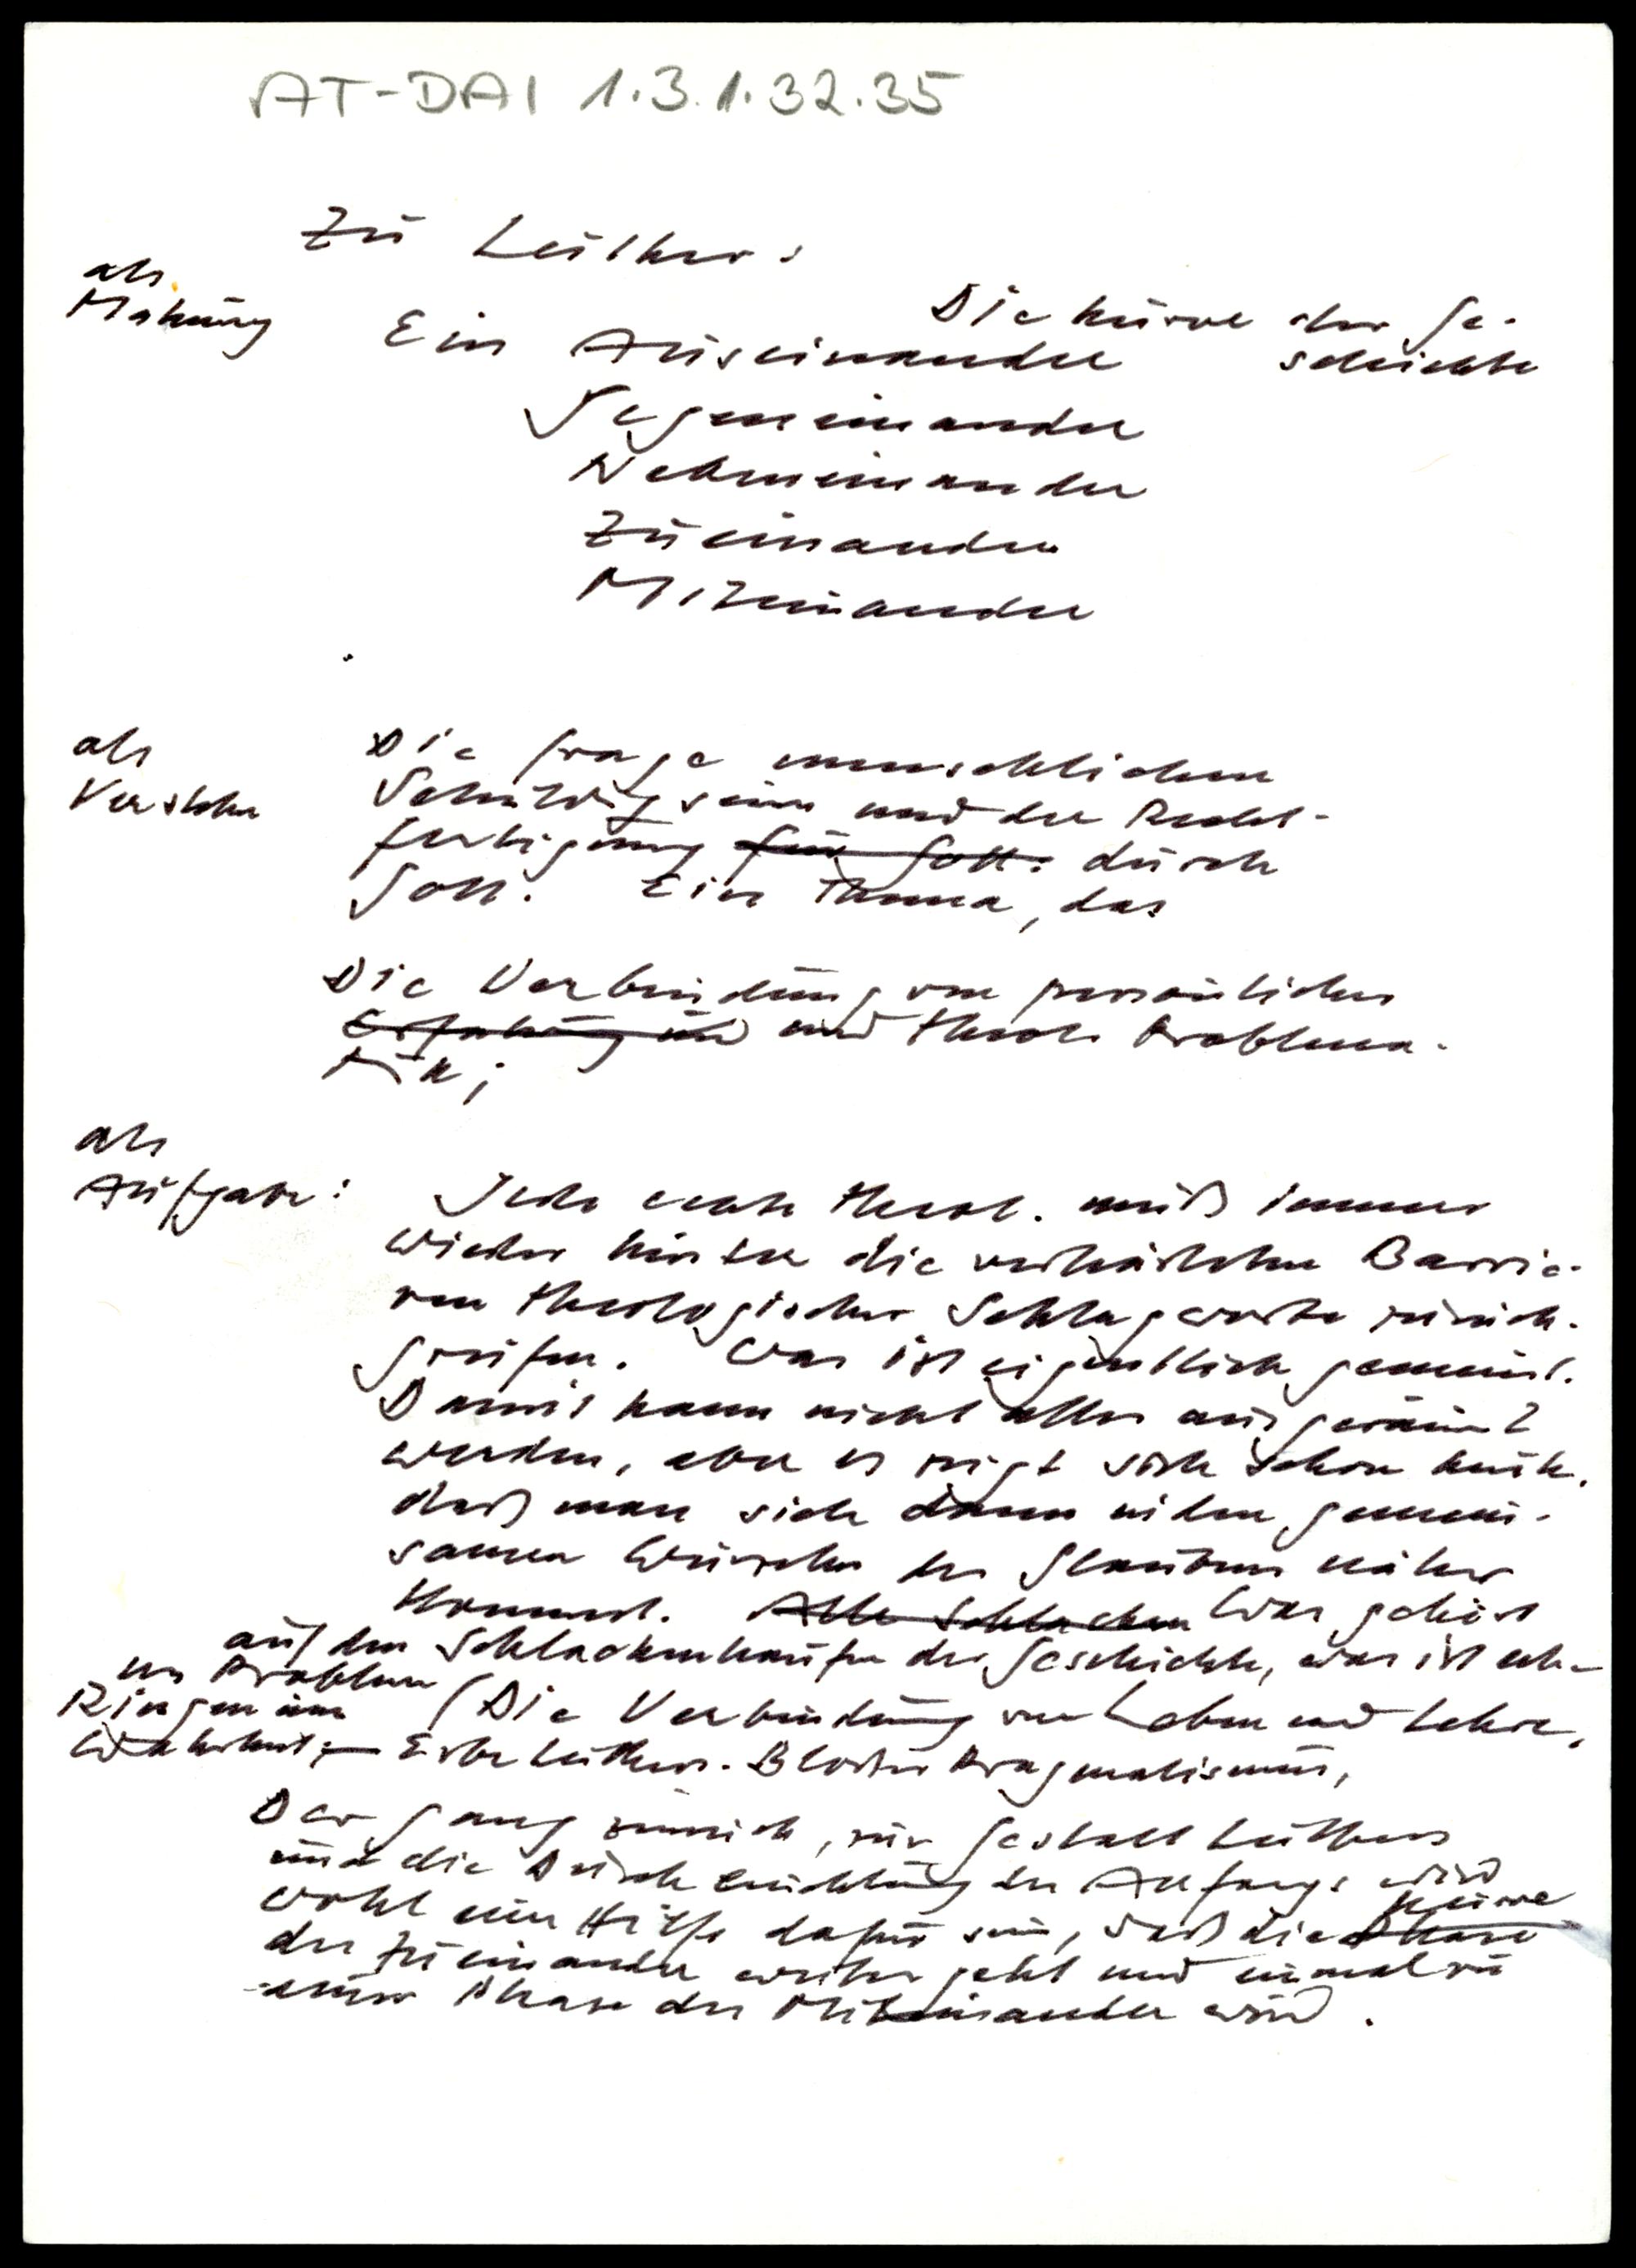 AT-DAI 1.3.1.32.35
Zu Luther:
als
Mahnung
Die Kurve der Ge-
schichte
Ein Auseinander
Gegeneinander
Nebeneinander
Zueinander
Miteinander
als
Verstehen
Die Frage menschlichen
Schuldigseins und der Recht-
fertigung für Gott. durch
Gott. Ein Thema, das
Die Verbindung von persönlicher
Erfahrung und und theol. Problema-
tik;
als
Aufgabe:
Jede echte Theol. muß immer
wieder hinter die verhärteten Barrie-
ren theologischer Schlagworte zurück-
greifen. Was ist eigentlich gemeint.
Damit kann nicht alles ausgeräumt
werden, aber es zeigt sich schon heute,
daß man sich dann in den gemein-
samen Wurzeln des Glaubens näher
kommt. Alle Schlacken Was gehört
auf den Schlackenhaufen der Geschichte, was ist
um Probleme
Ringen um
Wahrheit;
(Die Verbindung von Leben und Lehre,
Erbe Luthers. Bloßer Pragmatismus,
Der Gang zurück, zur Gestalt Luthers
und die Durchleuchtung des Anfangs wird
wohl eine Hilfe dafür sein, daß die Phase Kurve
des Zueinander weiter geht und einmal zu
einer Phase des Miteinander wird.